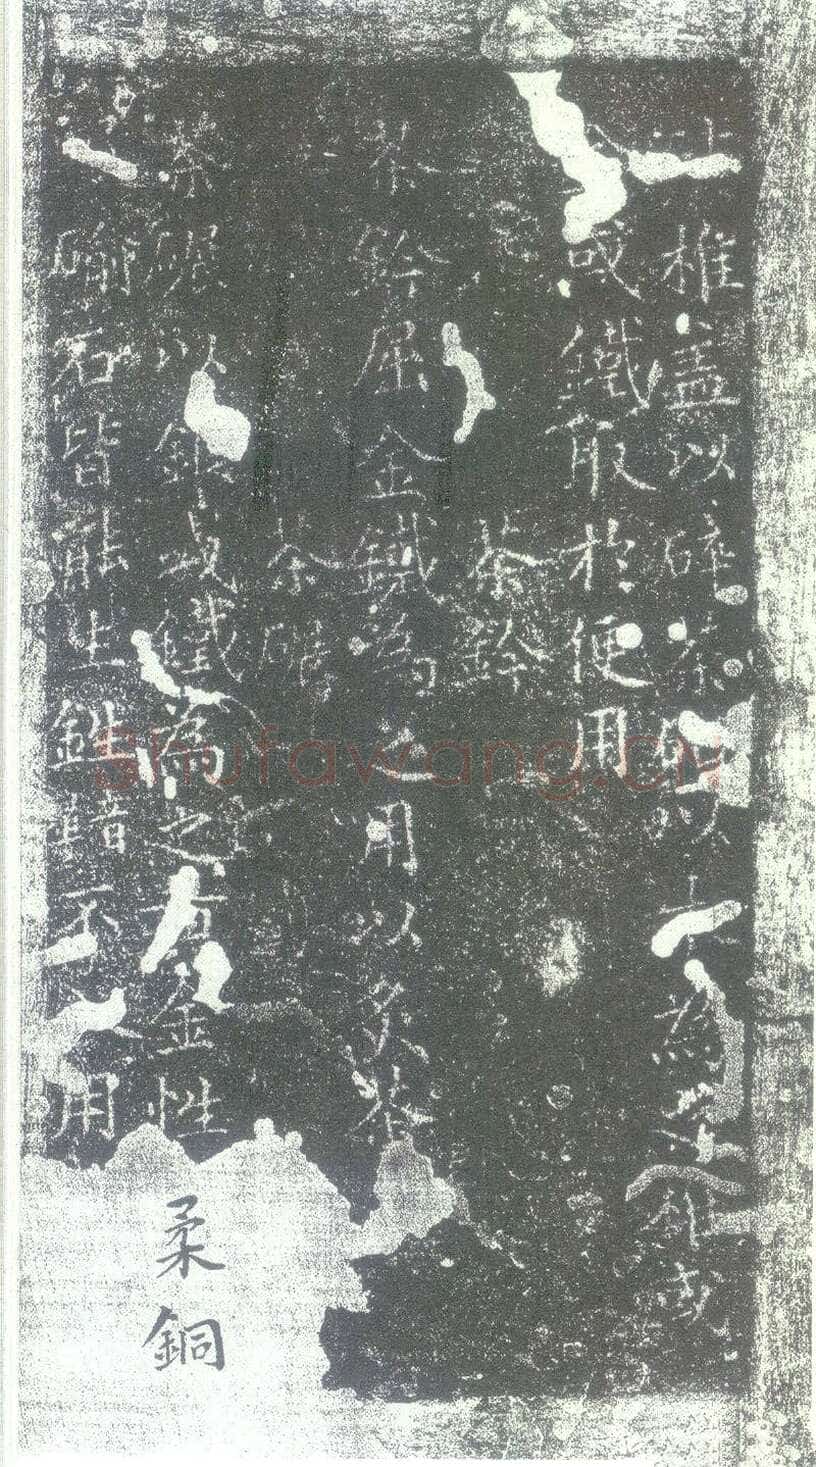 椎蓋以碎茶砧以木為之椎或
或鐵取於便用
茶鈐
茶鈐屈金鐵為之用以炙茶
茶碾
茶碾以銀或鐵為之黃金性柔銅
及鍮石皆能生鉎音星不入用
shufawang.CN